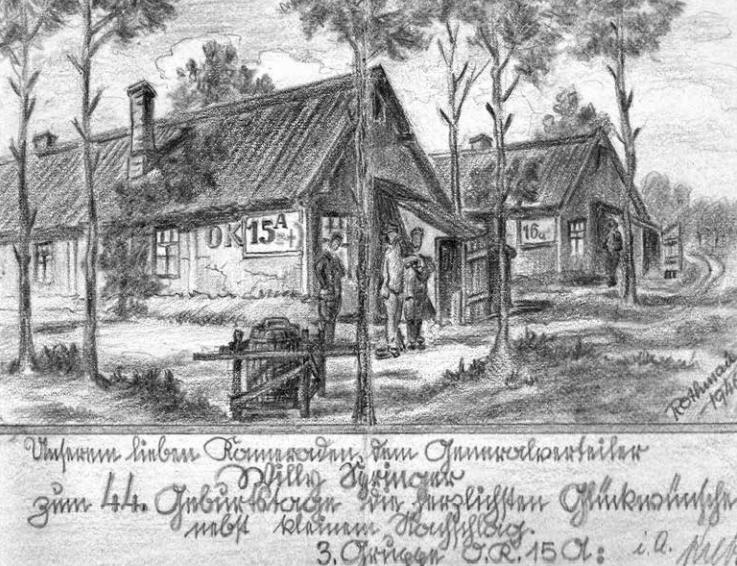 OK 15A
16a
Rothmann
194
Unserem lieben Kameraden, dem Generalverteiler
Willy Springer
zum 44. Geburtstage die herzlichsten Glückwünsche
nebst kleinem Nachschlag.
3. Gruppe O.K. 15 A: i. A.